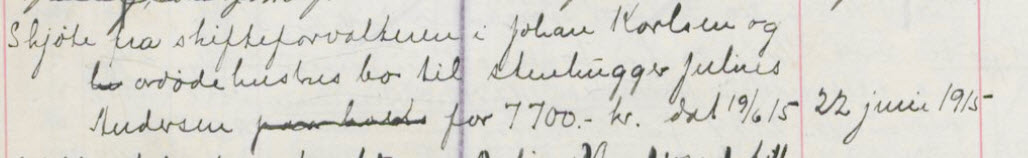 Skjöte fra skifteforvalteren i Johan Karlsen og
avdöde hustrus bo til stenhugger Julius
Andersen for 7700.- kr. dat 19/6 15 22 juni 1915